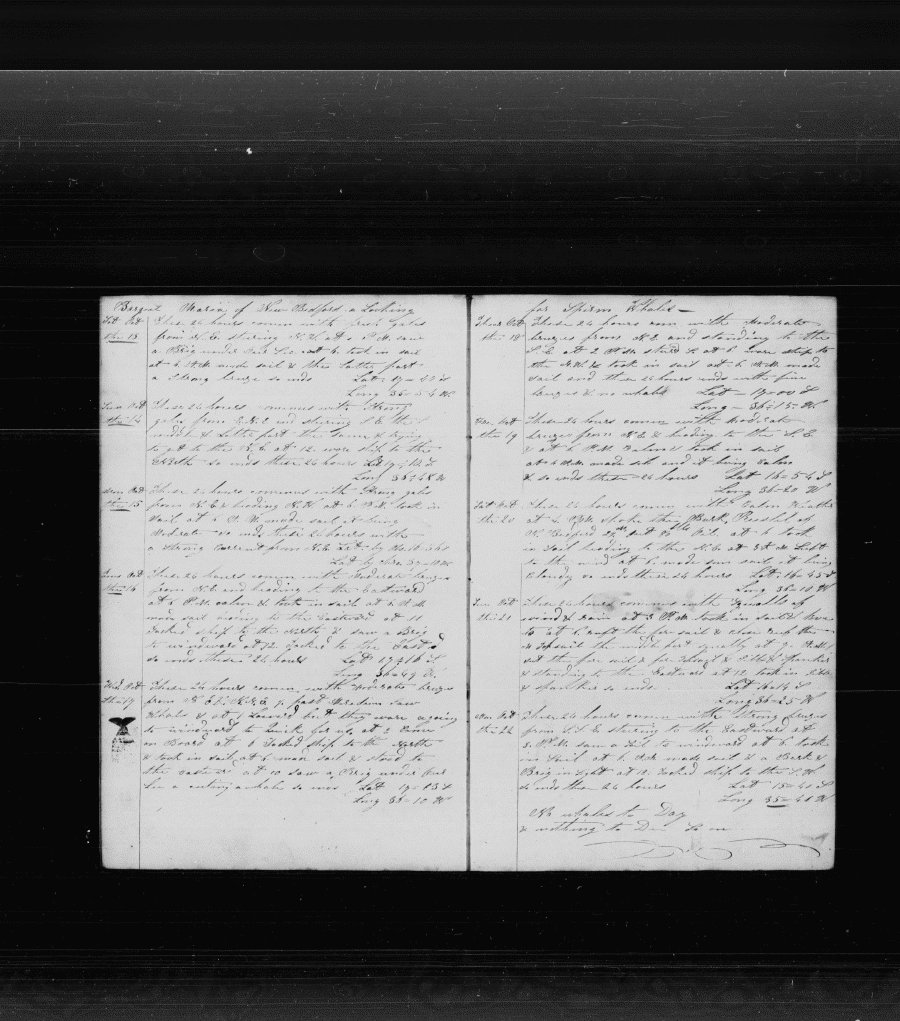 Maria of New Bedford a Looking
Sat Oct
the 13
These 24 hours comes with fresh gales
from N.E. stering N.W. at 5 P.M. saw
a Brig under our Lee at 6 took in sail
at 6 A.M. made sail & the latter part
a Strong breeze so ends Lat 19 =
Long 36 = 4 W
Sun Oct
the 14
These 24 hours comences with Strong
gales from E.N.E and stering S.E the
middle & Latter part the same & trying
to get to the N.E at 12 wore ship to the
North so ends these 24 hours Lat 19 = 14 S
Long 36 = 48 W
Oct
the 15
These 24 hours comences with Strong gales
from N.E & heading N.W. at 6 P.M. took in
sail at 6 A.M. made sail it being
Moderate so ends these 24 hours with a
a Strong current from N.E Lat by
Long by
Oct
the 16
These 24 hours comes with Moderate breezes
from N.E and heading to the Eastward
at 6 P.M. calm & took in sail at 6 A.M.
made sail going to the Eastward at 11
tacked ship to the North & saw a Brig
to windward at 12 tacked to the East
so ends these 24 hours Lat 17 = 16 S
Long 36 = 49 W
Wed Oct
the 17
These 24 hours comes with Moderate breezes
from N.E by N.E at 1 past Meridian saw
Whales & at 1 Lowerd but they were agoing
to windward to quick for us at 3 Came
on Board at 6 Tacked ship to the North
& took in sail at 6 made sail & stood to
the Eastward at 10 saw a Brig under Our
Lee a cuting a whale so ends Lat 17 = 13 S
Long 36 = 10 W
for Spirm Whales
Thur Oct
the 18
These 24 hours com with Moderate
breezes from N.E and standing to the
S.E at 2 P.M. at 6 wore ship to
the N.W. & took in sail at 6 A.M. made
sail and these 24 hours ends with fine
breezes & no whales Lat = 17 = 00 S
Long = 36 = 15 = W
Oct
the 19
These 24 hours comes with Moderate
breezes from N.E & heading to the S.E
& at 6 P.M. Calm & took in sail
at 6 A.M. made sail and it being Calm
& so ends these 24 hours Lat 16 = 54 S
Long 36 = 20 W
Sat Oct
the 20
These 24 hours comes with Calm Weather
at 4 P.M. spoke the Bark of
N. Bedford out Oil at 6 took
in Sail heading to the N.E at 8 A.M. Light
so the wind at 6 made sum sail it being
Cloudy so ends these 24 hours Lat 16 = 45 S
Long 36 = 10 W
Sun Oct
the 21
These 24 hours comences with Squalls of
wind & rain at 3 P.M. took in sail & hove
to at 6
set the fore sail & & Spanker
& standing to the Eastward at 12 took in
& spanker so ends Lat 16 = 14 S
Long 36 = 25 W
Oct
the 22
These 24 hours comes with Strong breezes
from S.S.E stering to the Eastward at
5 P.M. saw a Sail to windward at 6 took
in Sail at 6 A.M. made sail & a Bark &
Brig in sight at 12 tacked ship to the S.W.
so ends these 24 hours Lat 15 = 40 S
Long 35 = 46 W
No whales to Day
& nothing to Do So on